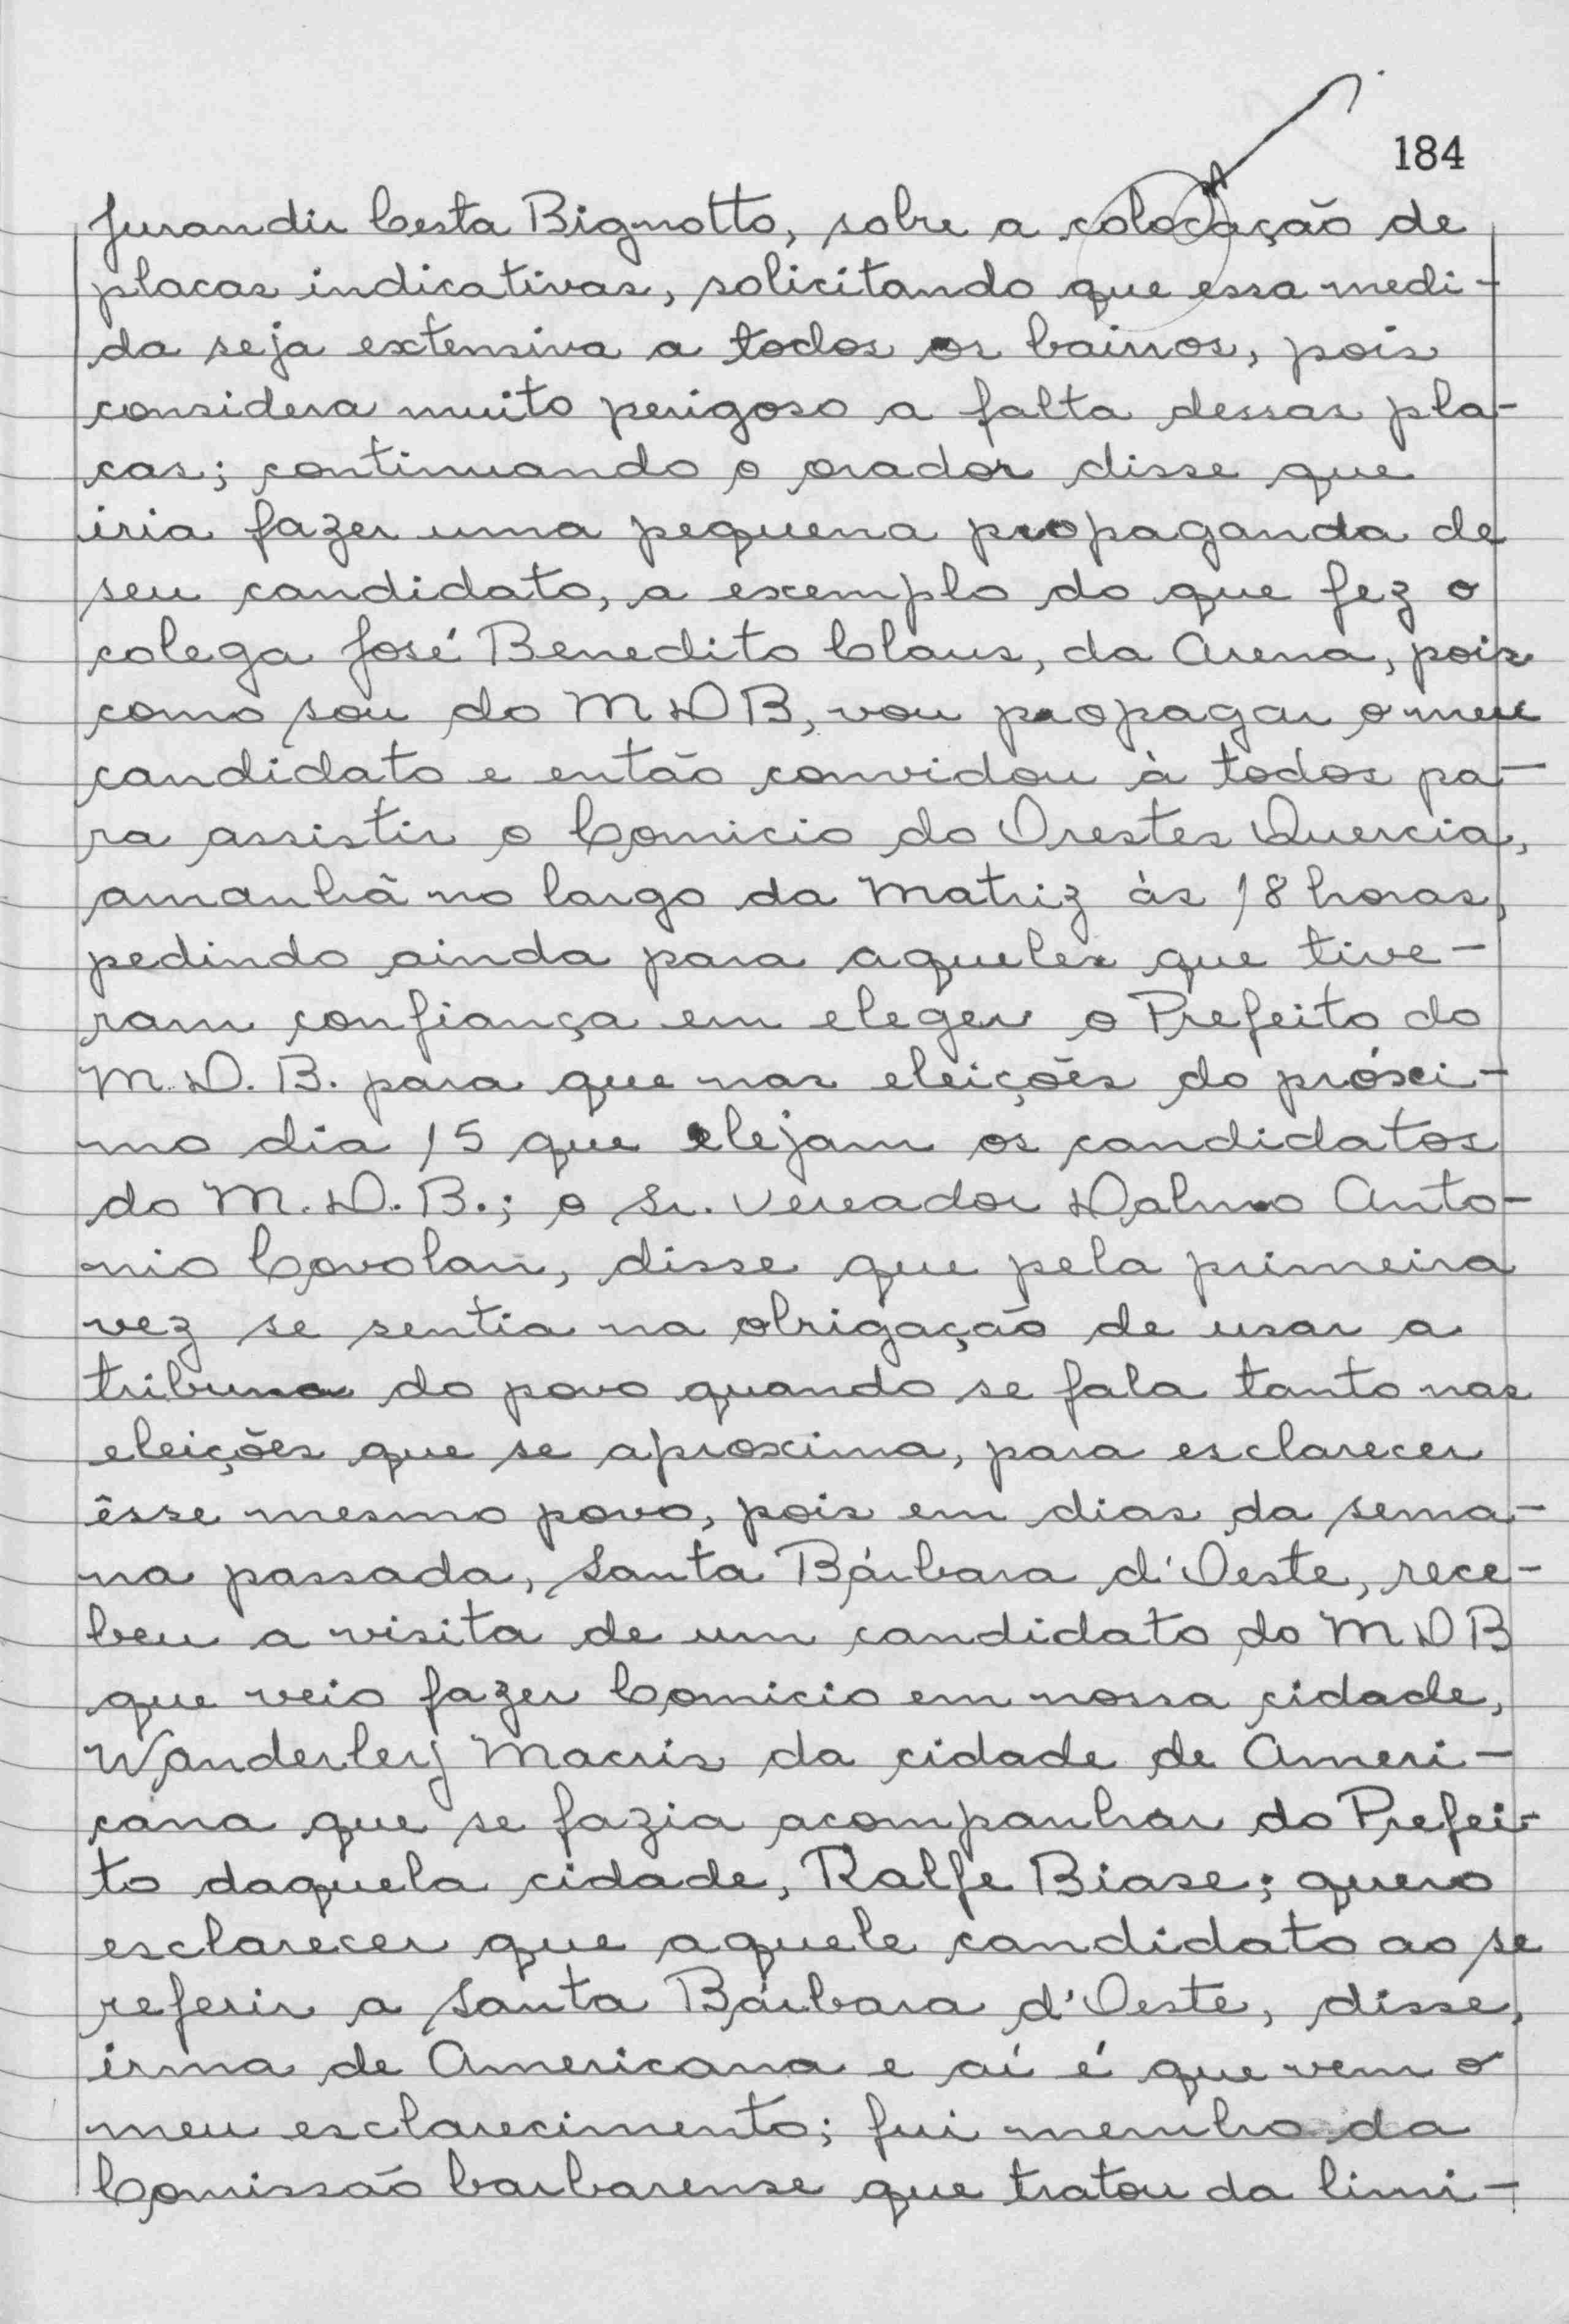 184
Jurandir Cesta Bignotto, sobre a colocação de
placas indicativas, solicitando que essa medi-
da seja extensiva a todos os bairros, pois
considera muito perigoso a falta dessas pla-
cas; continuando o orador disse que
iria fazer uma pequena propaganda de
seu candidato, a exemplo do que fez o
colega José Benedito Claus, da Arena, pois
como sou do MDB, vou propagar o meu
candidato e então convidou à todos pa-
ra assistir o Comicio do Orestes Quercia,
amanhã no largo da Matriz às 18 horas,
pedindo ainda para aqueles que tive-
ram confiança em eleger o Prefeito do
M.D.B. para que nas eleições do próxi-
mo dia 15 que elejam os candidatos
do M.D.B.; o Sr. Vereador Dalmo Anto-
nio Covolan, disse que pela primeira
vez se sentia na obrigação de usar a
tribuna do povo quando se fala tanto nas
eleições que se aproxima, para esclarecer
êsse mesmo povo, pois em dias da sema-
na passada, Santa Bárbara d'Oeste, rece-
beu a visita de um candidato do MDB
que veio fazer Comicio em nossa cidade,
Wanderley Macris da cidade de Ameri-
cana que se fazia acompanhar do Prefei-
to daquela cidade, Ralfe Biase; quero
esclarecer que aquele candidato ao se
referir a Santa Bárbara d'Oeste, disse,
irma de Americana e aí é que vem o
meu esclarecimento; fui membro da
Comissão barbarense que tratou da limi-